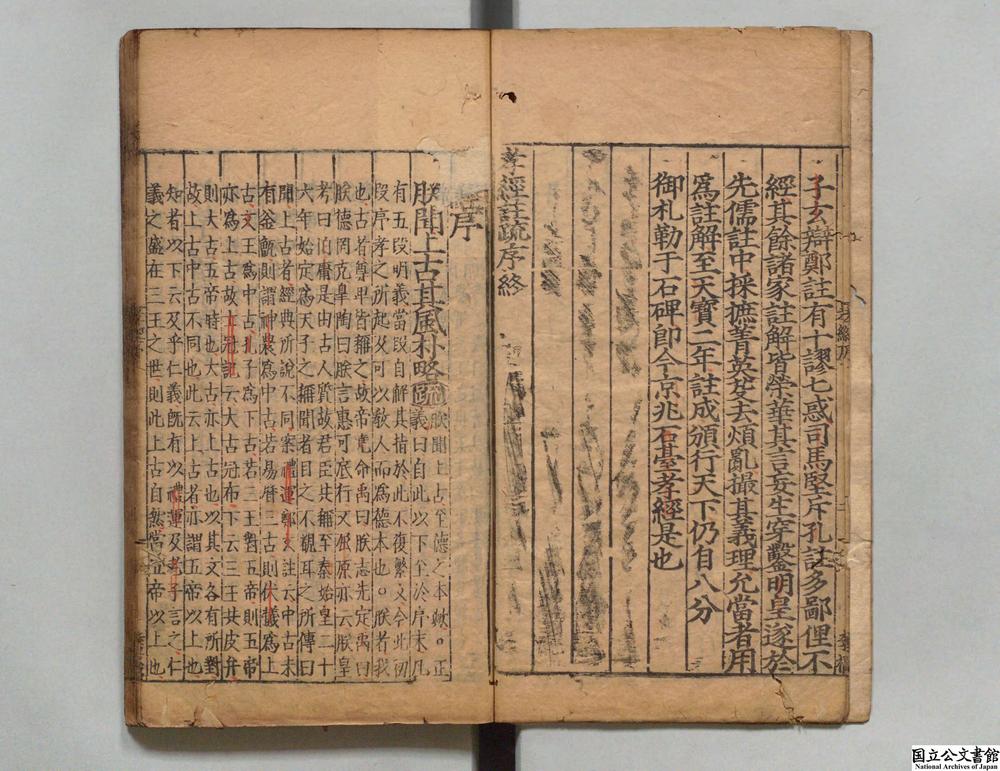 子玄辯鄭註有十謬七惑司馬堅斥孔註多鄙俚不
經其餘諸家註解皆榮華其言妄生穿鑿明皇遂於
先儒註中採摭菁英芟去煩亂撮其義理允當者用
爲註解至天寶二年註成頒行天下仍自八分
御札勒于石碑即今京兆石臺孝經是也
孝經註疏序終
序
朕聞上古其風朴略疏
朕聞上古至德之本歟○正
義曰自此以下至於序末凡
有五段明義當段自解其指於此不復繁文今此初
段序孝之所起及可以教人而爲德本也○朕者我
也古者尊卑皆稱之故帝堯命禹曰朕志先定禹曰
朕德罔克皐陶曰朕言惠可底行又屈原亦云朕皇
考曰伯庸是由古人質故君臣共稱至秦始皇二十
六年始定爲天子之稱聞者目之不覩耳之所傳曰
聞上古者經典所說不同案禮運鄭玄註云中古未
有釜甑則謂神農爲中古若易歷三古則伏羲爲上
古文王爲中古孔子爲下古若三王對五帝則五帝
亦爲上古故士冠記云大古冠布下云三王共皮弁
則大古五帝時也大古亦上古也以其文各有所對
故上古中古不同也此云上古者亦謂五帝以上也
知者以下云及乎仁義既有以禮運及老子言之仁
義之盛在三王之世則此上古自然當五帝以上也
国立公文書館
National Archives of Japan